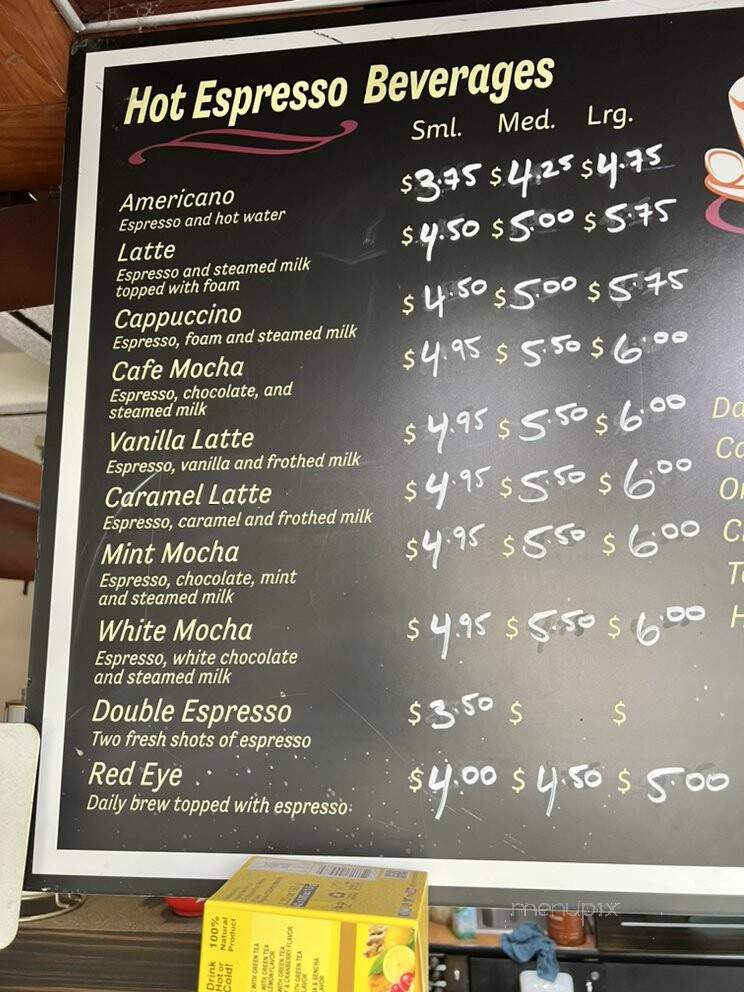 Hot Espresso Beverages
Sml. Med. Lrg.
Americano $3.75 $4.25 $4.75
Espresso and hot water
Latte $4.50 $5.00 $5.75
Espresso and steamed milk
topped with foam
Cappuccino $4.50 $5.00 $5.75
Espresso, foam and steamed milk
Cafe Mocha $4.95 $5.50 $6.00
Espresso, chocolate, and
steamed milk
Vanilla Latte $4.95 $5.50 $6.00
Espresso, vanilla and frothed milk
Caramel Latte $4.95 $5.50 $6.00
Espresso, caramel and frothed milk
Mint Mocha $4.95 $5.50 $6.00
Espresso, chocolate, mint
and steamed milk
White Mocha $4.95 $5.50 $6.00
Espresso, white chocolate
and steamed milk
Double Espresso $3.50 $ $
Two fresh shots of espresso
Red Eye $4.00 $4.50 $5.00
Daily brew topped with espresso
Da
Ca
Or
C
T
H
100%
Natural
Product
Drink
Hot or
Cold!
WITH GREEN TEA
WITH GREEN TEA
LEMON FLAVOR
WITH GREEN TEA
& CRANBERRY FLAVOR
WITH GREEN TEA
& SENCHA
menupix